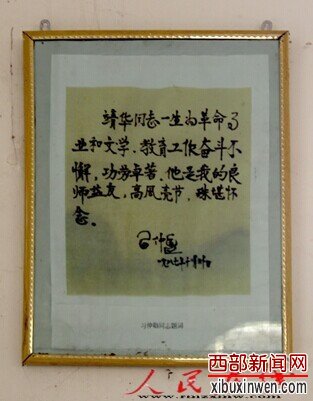 靖华同志一生为革命事
业和文学、教育工作奋斗不
懈，功劳卓著，他是我的良
师益友，高風亮节，殊堪怀
念。
习仲勋
一九八七年十月
习仲勋同志题词
西部新闻网
xibuxinwen.com
人民